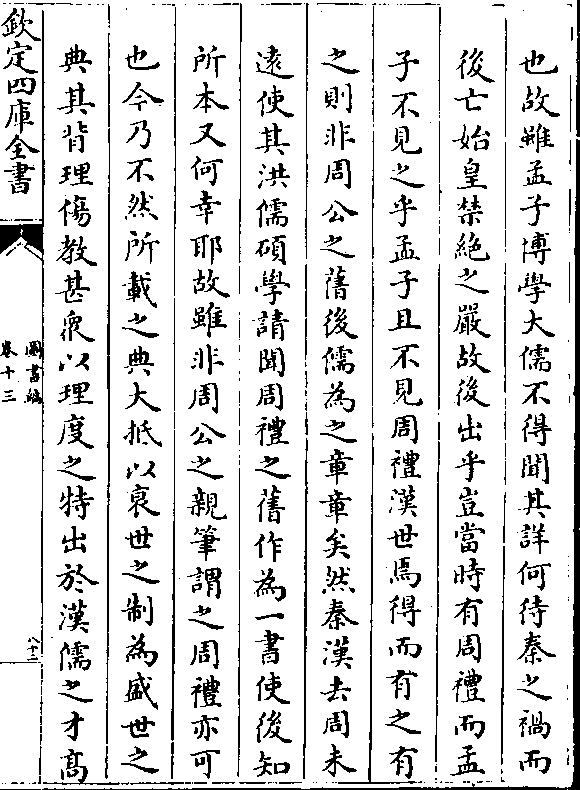 也故雖孟子博學大儒不得聞其詳何待秦之禍而
後亡始皇禁絶之嚴故後出乎豈當時有周禮而孟
子不見之乎孟子且不見周禮漢世焉得而有之有
之則非周公之舊後儒為之章章矣然秦漢去周未
遠使其洪儒碩學請聞周禮之舊作為一書使後知
所本又何幸耶故雖非周公之親筆謂之周禮亦可
也今乃不然所載之典大抵以衰世之制為盛世之
典其背理傷教甚衆以理度之特出於漢儒之才髙
欽定四庫全書
圖書編
卷十三
八十二